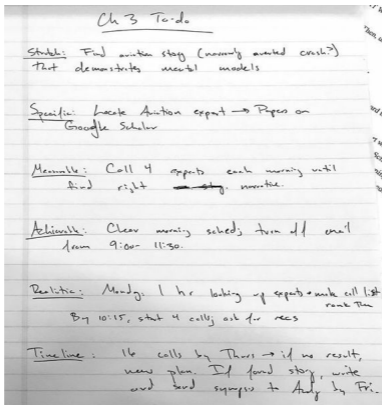 Ch 3 To-do
Stretch: Find aviation story (narrowly averted crash?)
that demonstrates mental models
Specific: Locate Aviation expert → Papers on
Google Scholar
Measurable: Call 4 experts each morning until
find right narrative.
Achievable: Clear morning sched; turn off email
from 9:00- 11:30.
Realistic: Monday. 1 hr looking up experts + make call list
rank them
By 10:15, start 4 calls; ask for recs
Timeline: 16 calls by Thurs → if no result,
new plan. If find story, write
and send synopsis to Andy by Fri.